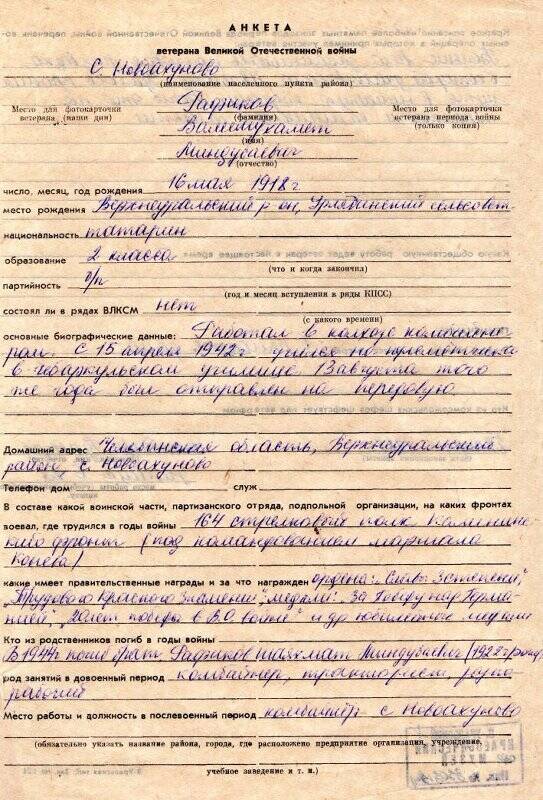 АНКЕТА
ветерана Великой Отечественной войны
С. Новоахуново
(наименование населенного пункта района)
Место для фотокарточки
ветерана (наши дни)
Место для фотокарточки
ветерана периода войны
(только копия)
Фадзиков
(фамилия)
Валемухамет
(имя)
Миндубаевич
(отчество)
число, месяц, год рождения 16 мая 1918 г
место рождения Верхнеуральский р-он, сельсовет
национальность татарин
образование 2 класса
(что и когда закончил)
партийность б/п
(год и месяц вступления в ряды КПСС)
состоял ли в рядах ВЛКСМ нет
(с какого времени)
основные биографические данные: Работал в колхозе комбайне-
ром. С 15 апреля 1942 г учился на пулеметчика
в чебаркульском училище 13 августа того
же года был отправлен на передовую
Домашний адрес Челябинская область, Верхнеуральский
район с. Новоахуново
Телефон дом служ
В составе какой воинской части, партизанского отряда, подпольной организации, на каких фронтах
воевал, где трудился в годы войны 164 стрелковый полк Калинин-
ский фронт (под командованием маршала
Конева)
какие имеет правительственные награды и за что награжден ордена: „Славы 3 степени",
„Трудового Красного Знамени", медали: „За победу над Герма-
нией", „30 лет победы в В.О. войне" и др юбилейные медали
Кто из родственников погиб в годы войны
В 1944 г погиб брат Фадзиков Шахмат Миндубаевич (1922 г рожд)
род занятий в довоенный период комбайнер, тракторист, разно
рабочий
Место работы и должность в послевоенный период комбайнёр с Новоахуново
(обязательно указать название района, города, где расположено предприятие организация, учреждение,
учебное заведение и т. п.)
КРАЕВЕДЧЕСКИЙ
МУЗЕЙ